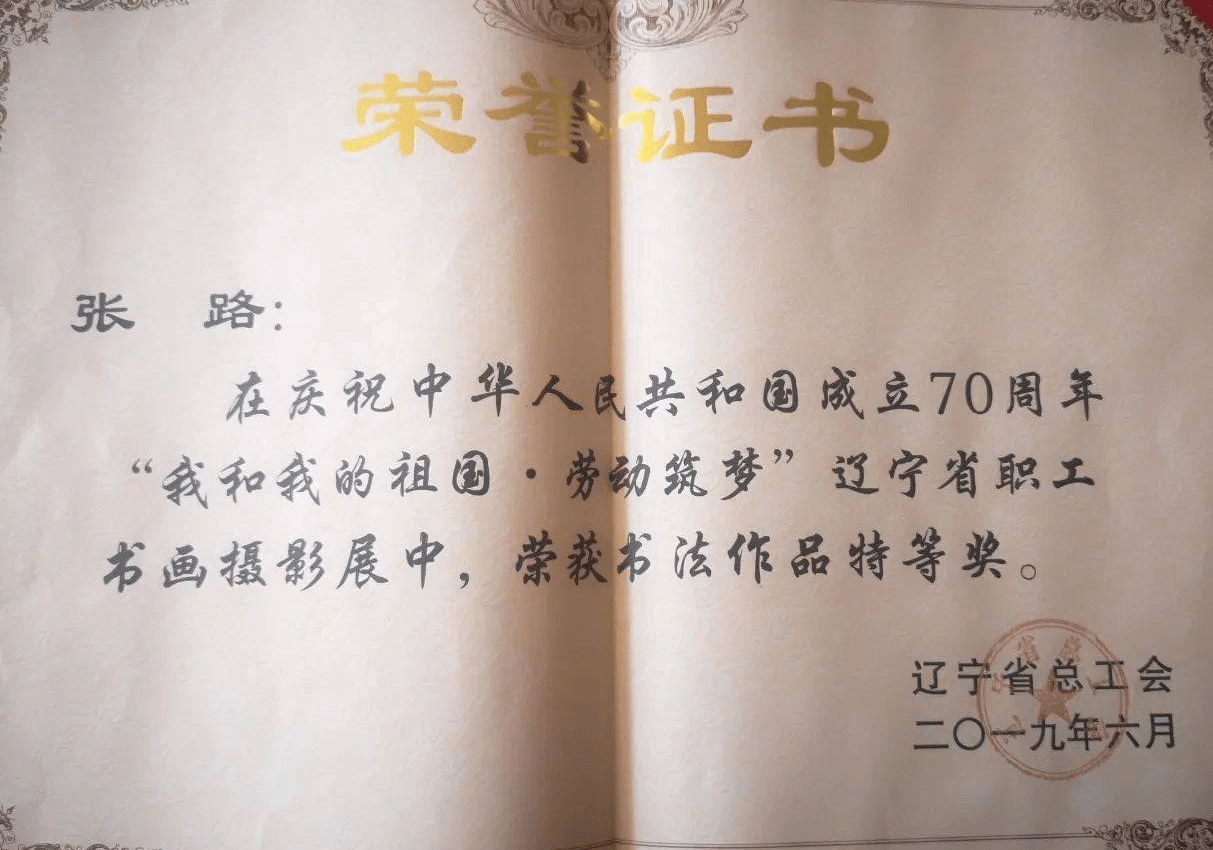 荣誉证书
张 路：
在庆祝中华人民共和国成立70周年
“我和我的祖国·劳动筑梦”辽宁省职工
书画摄影展中，荣获书法作品特等奖。
辽宁省总工会
二〇一九年六月